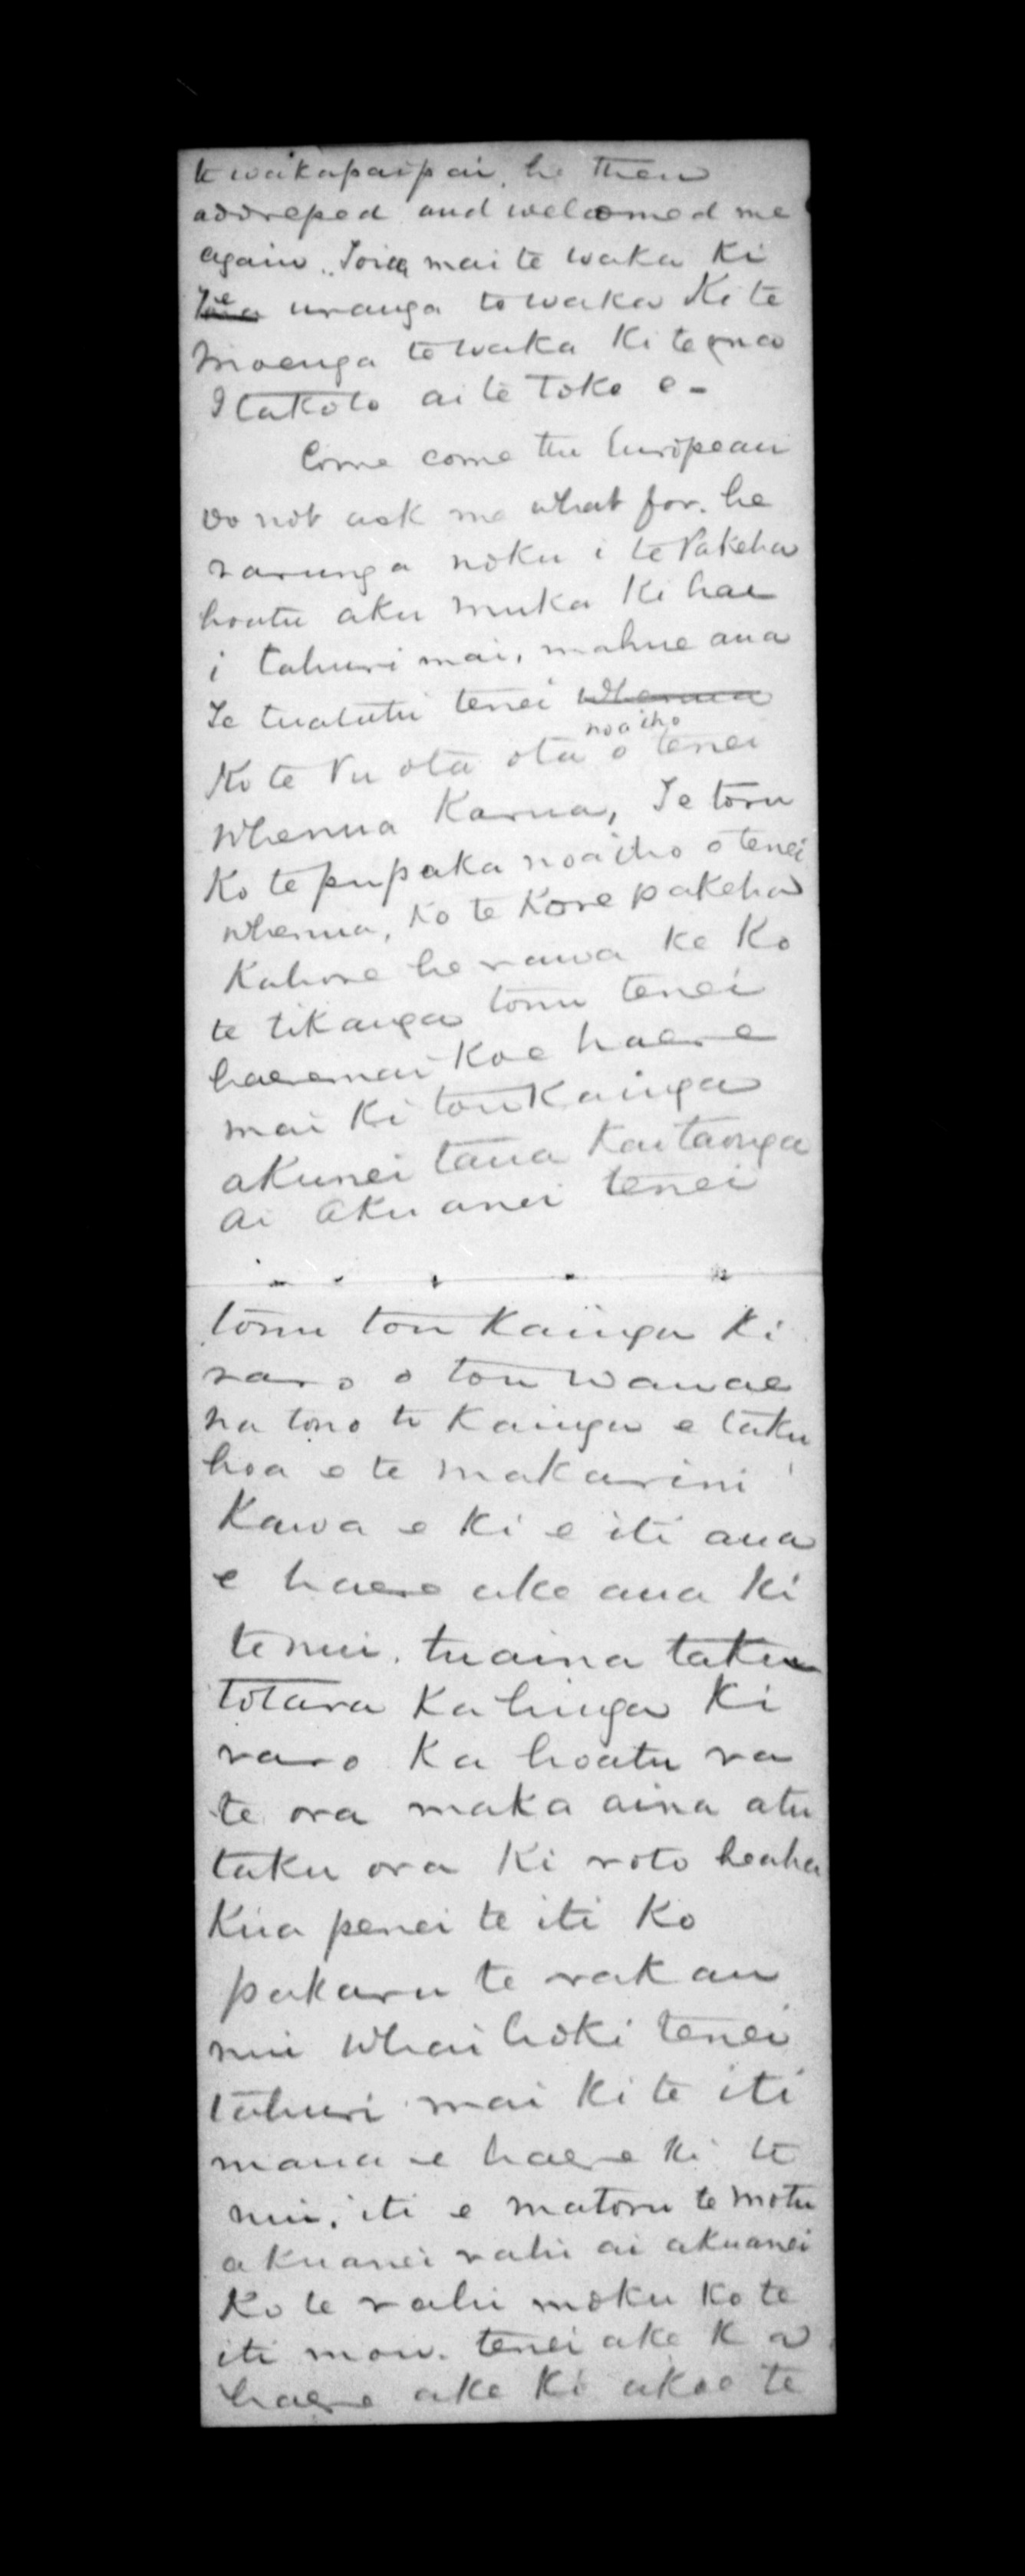 te wakapaipai, he then
addressed and welcomed me
again. Toia mai te waka ki
te uranga te waka Ki te
moenga te waka Ki te
I takoto ai te Toke e -
Come come thu European
do not ask me what for. he
rarunga noku i te Pakeha
hoatu aku muka Ki hae
i tahuri mai, mahue ana
Te tuatutu tenei whenua
Ko te Pu ota ota noa iho o tenei
Whenua Karua, Te toru
Ko te pupaka noa iho o tenei
whenua, Ko te Kore pakeha
Kahore he rawa ke Ko
te tikanga tomu tenei
haeremai Koe haere
mai Ki tou Kainga
akunei taua Kai taonga
ai akuanei tenei
tomu tou Kainga Ki
raro o tou wawae
na tono te Kainga e taku
hoa e te makarini
Kawa e Ki e iti ana
e haere ake ana Ki
te nui. tuaina taku
totara Ka hinga Ki
raro Ka hoatu ra
te ora maka aina atu
taku ora Ki roto heaha
Kua penei te iti Ko
pakaru te rakau
nui Whai hoki tenei
tahuri mai Ki te iti
mana e haere Ki te
nui. iti e matoru te motu
akuanei rahi ai akuanei
Ko te rahi moku Ko te
iti mou. tenei ake Ka
haere ake Ki akoe te